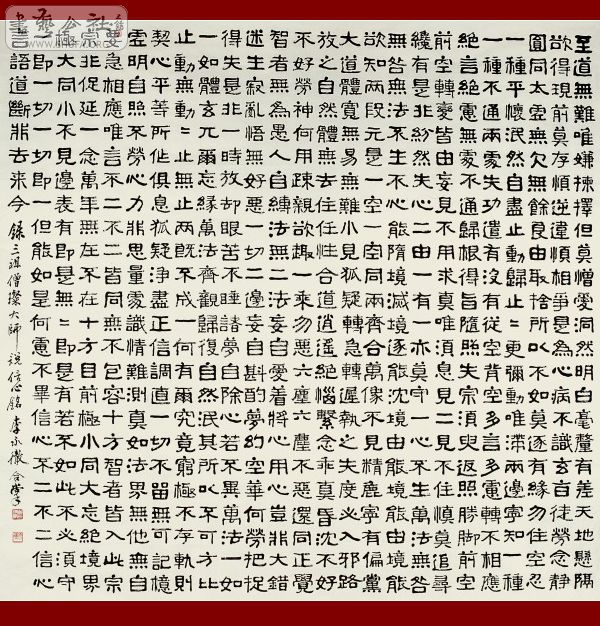 至道無難唯嫌揀擇但莫憎愛洞然明白毫釐有差天地懸隔
欲得現前莫存順逆違順相爭是為心病不識玄旨徒勞念靜
圓同太虛無欠無餘良由取捨所以不如莫逐有緣勿住空忍
一種平懷泯然自盡止動歸止〻更彌動唯滯兩邊寧知一種
一種不通兩處失功遣有沒有從空背空多言多慮轉不相應
絕言絕慮無處不通歸根得旨隨照失宗須臾返照勝脚前空
前空轉變皆由妄見不用求真唯須息見二見不住慎莫追尋
纔有是非紛然失心二由一有一亦莫守一心不生萬法無咎
無咎無法不生不心能隨境滅境逐能沈境由能境能由境能
欲知兩段元是一空一空同兩齊含萬像不見精麤寧有偏黨
大道體寬無易無難小見狐疑轉急轉遲執之失度必入邪路
放之自然體無去住任性合道逍遙絕惱繫念乖真昏沈不好
不好勞神何用疎親欲趣一乘勿惡六塵六塵不惡還同正覺
智者無為愚人自縛法無二法妄自愛著將心用心豈非大錯
迷生寂亂悟無好惡一切二邊妄自斟酌夢幻空華何勞把捉
得失是非一時放却眼若不睡諸夢自除心若不異萬法一如
一如體玄兀爾忘緣萬法齊觀歸復自然泯其所以不可方比
止動無動〻止無止兩既不成一何有爾究竟窮極不存軌則
契心平等所作俱息狐疑淨盡正信調直一切不留無可記憶
虛明自照不勞心力非思量處識情難測真如法界無他無自
要急相應唯言不二不二皆同無不包容十方智者皆入此宗
宗非促延一念萬年無在不在十方目前極小同大忘絕境界
極大同小不見邊表有即是無〻即是有若不如此不必須守
一即一切一切即一但能如是何慮不畢信心不二不二信心
言語道斷非去來今 錄三祖僧璨大師說信心銘 李永徽合掌
書藝公社